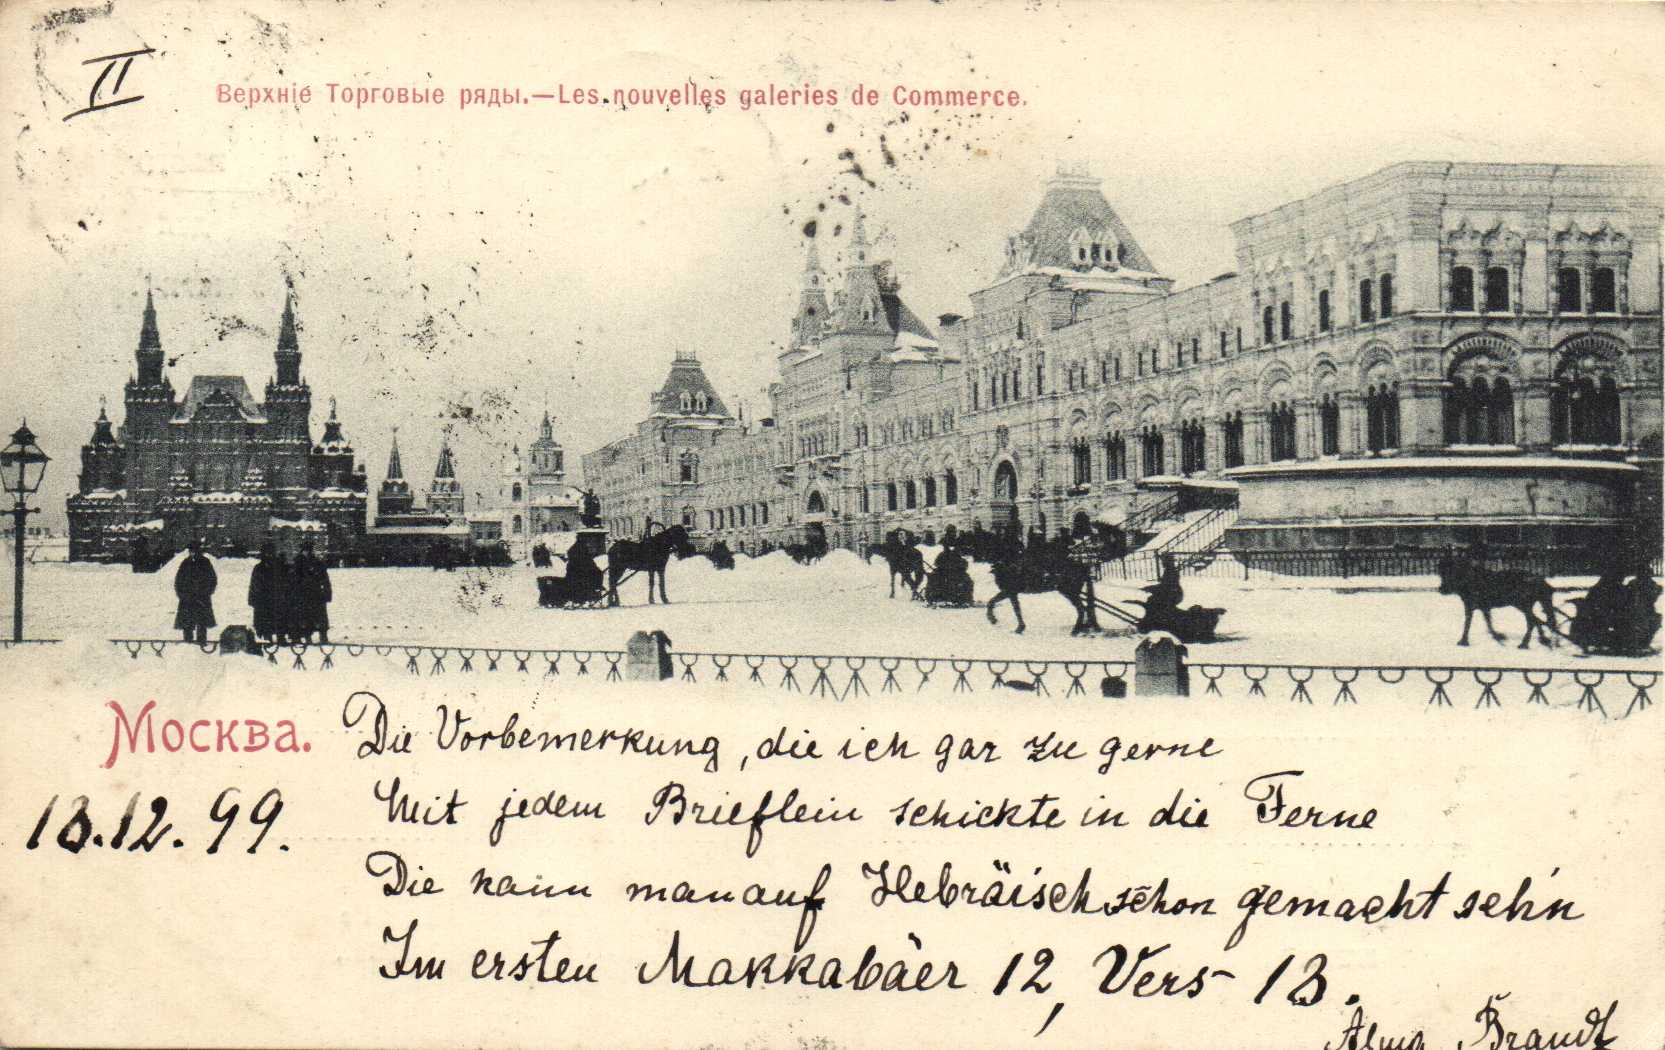 II
Верхніе Торговые ряды.—Les nouvelles galeries de Commerce.
Москва.
13.12.99.
Die Vorbemerkung, die ich gar zu gerne
Mit jedem Brieflein schickte in die Ferne
Die kann man auf Hebräisch schon gemacht seh'n
Im ersten Makkabäer 12, Vers 18.
Alma Brandt